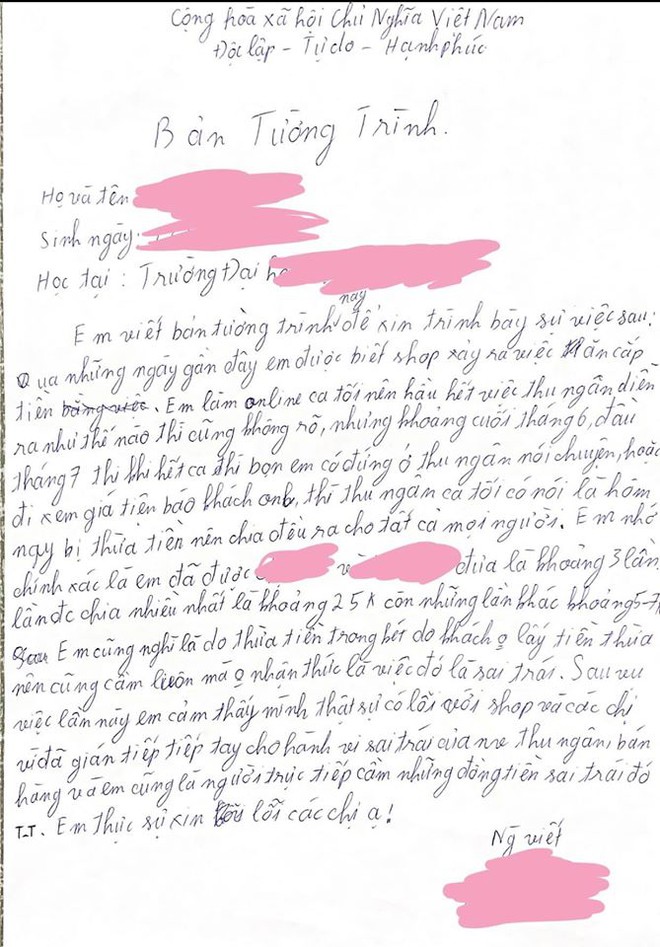 Cộng hòa xã hội Chủ Nghĩa Việt Nam
Độc lập - Tự do - Hạnh phúc
Bản Tường Trình.
Họ và tên
Sinh ngày:
Học tại : Trường Đại h
này
Em viết bản tường trình để xin trình bày sự việc sau:
Qua những ngày gần đây em được biết shop xảy ra việc ăn cắp
tiền bằng việc. Em làm online ca tối nên hầu hết việc thu ngân diễn
ra như thế nào thì cũng không rõ, nhưng khoảng cuối tháng 6, đầu
tháng 7 thì khi hết ca thì bọn em có đứng ở thu ngân nói chuyện, hoặc
đi xem giá tiện báo khách onl, thì thu ngân ca tối có nói là hôm
nay bị thừa tiền nên chia đều ra cho tất cả mọi người. Em nhớ
chính xác là em đã được và đưa là khoảng 3 lần,
lần đc chia nhiều nhất là khoảng 25k còn những lần khác khoảng 5-7k
Em cũng nghĩ là do thừa tiền trong két do khách o lấy tiền thừa
nên cũng cầm luôn mà o nhận thức là việc đó là sai trái. Sau vụ
việc lần này em cảm thấy mình thật sự có lỗi với shop và các chị
vì đã gián tiếp tiếp tay cho hành vi sai trái của nv thu ngân, bán
hàng và em cũng là người trực tiếp cầm những đồng tiền sai trái đó
T-T. Em thực sự xin lỗi các chị ạ!
Ng viết